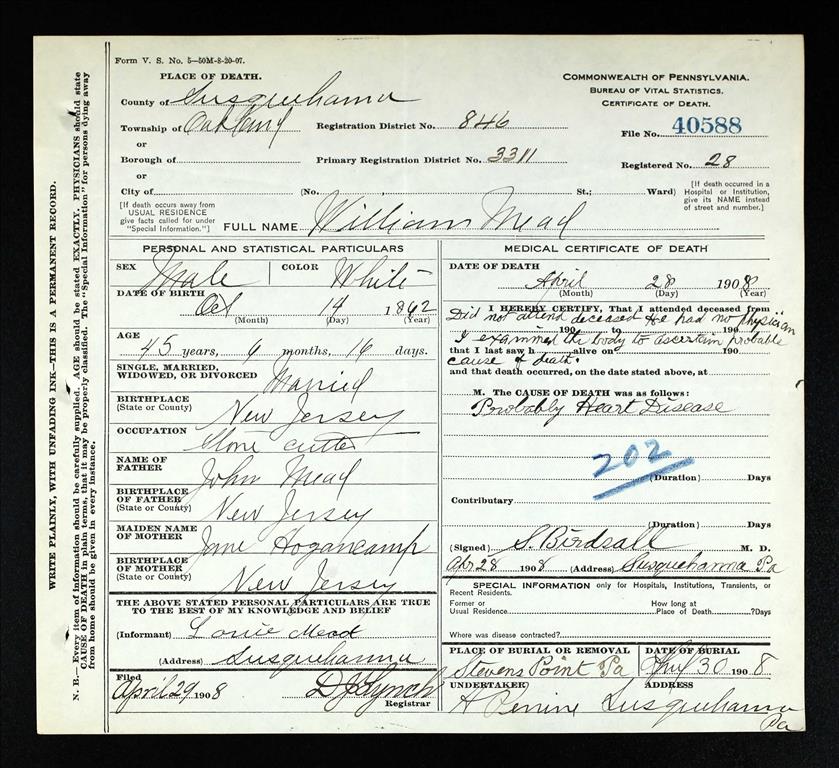 Form V. S. No. 5—50M-8-20-07.
PLACE OF DEATH.
County of Susquehanna
Township of Oakland
or
Borough of
or
City of
Registration District No. 846
Primary Registration District No. 3311
(No. St.; Ward)
COMMONWEALTH OF PENNSYLVANIA.
BUREAU OF VITAL STATISTICS.
CERTIFICATE OF DEATH.
File No. 40588
Registered No. 28
[If death occurred in a Hospital or Institution, give its NAME instead of street and number.]
[If death occurs away from USUAL RESIDENCE give facts called for under "Special Information."]
FULL NAME William Mead
PERSONAL AND STATISTICAL PARTICULARS
SEX Male COLOR White
DATE OF BIRTH Oct 14 1862
(Month) (Day) (Year)
AGE
45 years, 6 months, 16 days.
SINGLE, MARRIED, WIDOWED, OR DIVORCED Married
BIRTHPLACE (State or County) New Jersey
OCCUPATION Stone cutter
NAME OF FATHER John Mead
BIRTHPLACE OF FATHER (State or County) New Jersey
MAIDEN NAME OF MOTHER Jane Hogancamp
BIRTHPLACE OF MOTHER (State or County) New Jersey
THE ABOVE STATED PERSONAL PARTICULARS ARE TRUE
TO THE BEST OF MY KNOWLEDGE AND BELIEF
(Informant) Mead
(Address) Susquehanna
Filed
April 29 1908 D J Lynch
Registrar
MEDICAL CERTIFICATE OF DEATH
DATE OF DEATH
April 28 1908
(Month) (Day) (Year)
I HEREBY CERTIFY, That I attended deceased from
Did not attend deceased He had no physician
190 to 190
I examined the body to ascertain probable
that I last saw h alive on 190
cause of death.
and that death occurred, on the date stated above, at
M. The CAUSE OF DEATH was as follows:
Probably Heart Disease
202
(Duration) Days
Contributory
(Duration) Days
(Signed) S Birdsall M. D.
Apr 28 1908 (Address) Susquehanna Pa
SPECIAL INFORMATION only for Hospitals, Institutions, Transients, or Recent Residents.
Former or Usual Residence
How long at Place of Death ?Days
Where was disease contracted?
PLACE OF BURIAL OR REMOVAL DATE OF BURIAL
Stevens Point Pa April 30 1908
UNDERTAKER ADDRESS
A Perrine Susquehanna
Pa
WRITE PLAINLY, WITH UNFADING INK—THIS IS A PERMANENT RECORD.
N. B.—Every item of information should be carefully supplied. AGE should be stated EXACTLY, PHYSICIANS should state
CAUSE OF DEATH in plain terms, that it may be properly classified. The "Special Information" for persons dying away
from home should be given in every instance.